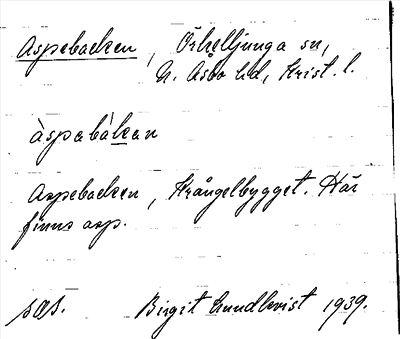 Aspebacken, Örkelljunga sn,
N. Åsbo hd, Krist. l.
àspabákan
Aspebacken, Krångelbygget. Här
finns asp.
sås. Birgit Lundkvist 1939.